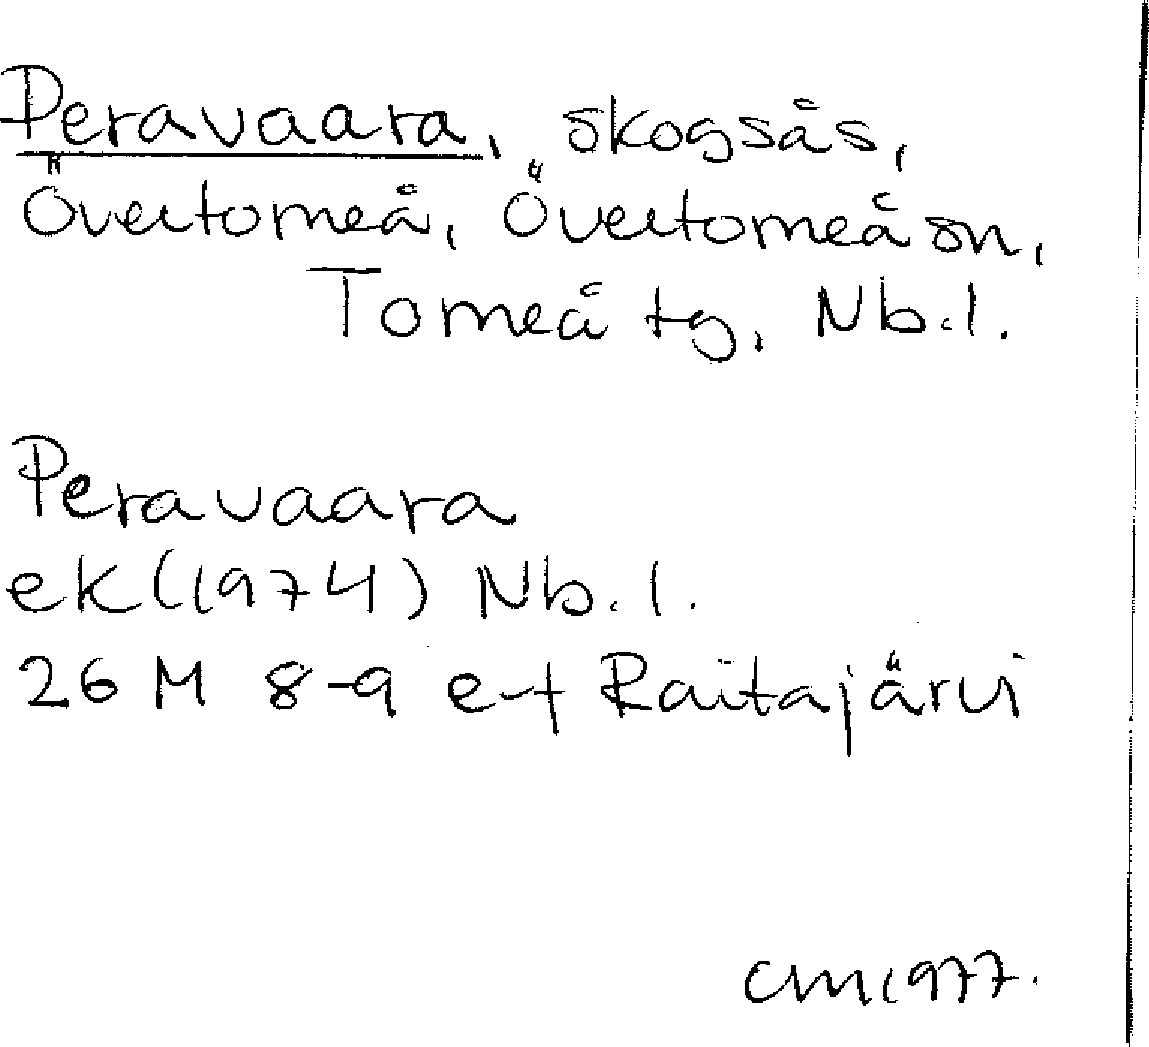 Peravaara, skogsås,
Övertorneå, Övertorneå sn,
Torneå tg, Nb.l.
Peravaara
ek (1974) Nb.l.
26 M 8-9 e-f Raitajärvi
CM 1977.